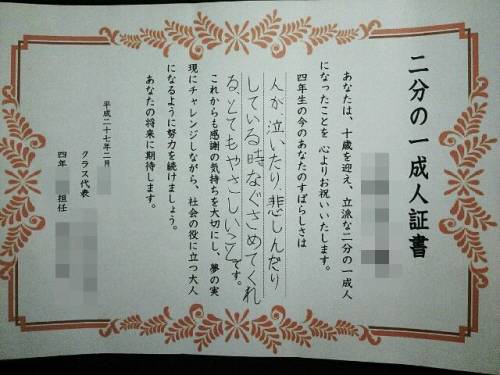 二分の一成人証書
あなたは、十歳を迎え、立派な二分の一成人
になったことを 心よりお祝いいたします。
四年生の今のあなたのすばらしさは
人が、泣いたり、悲しんだり
している時なぐさめてくれ
る、とてもやさしいこと です。
これからも感謝の気持ちを大切にし、夢の実
現にチャレンジしながら、社会の役に立つ大人
になるように努力を続けましょう。
あなたの将来に期待します。
平成二十七年二月
クラス代表
四年 担任